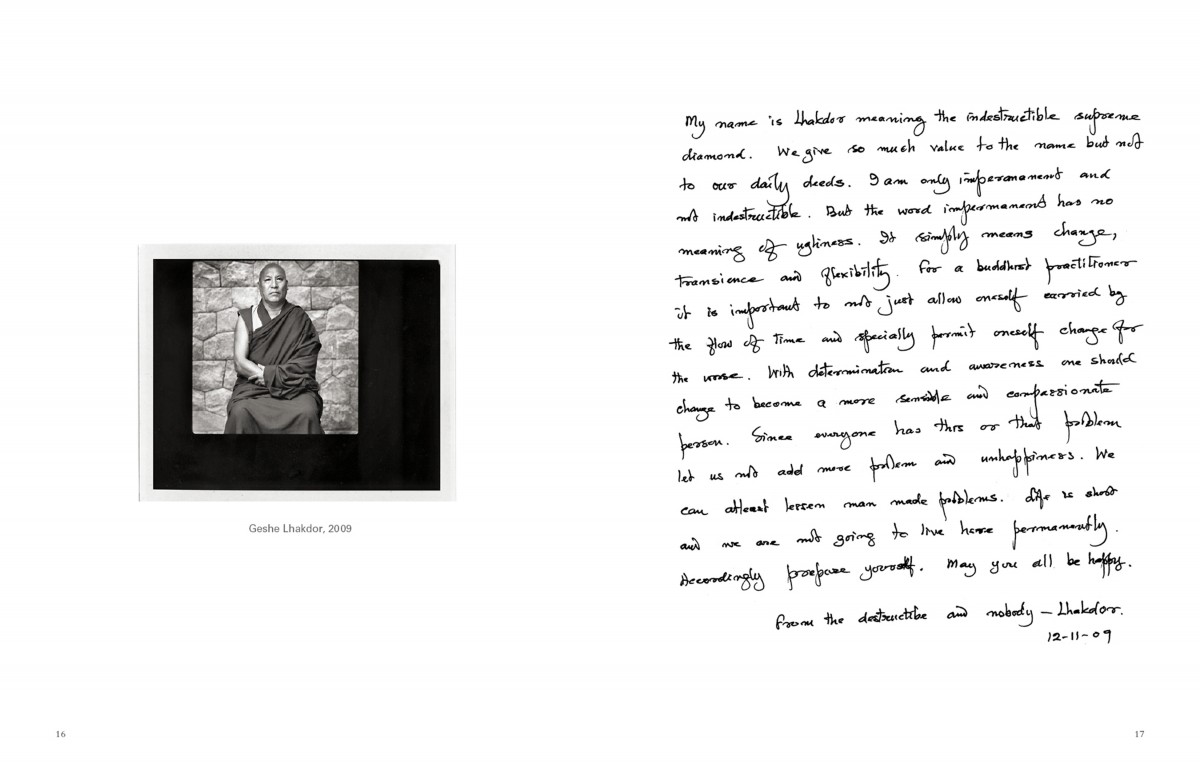 My name is Lhakdor meaning the indestructible supreme
diamond. We give so much value to the name but not
to our daily deeds. I am only impermanent and
not indestructible. But the word impermanent has no
meaning of ugliness. It simply means change,
transience and flexibility. For a buddhist practitioner
it is important to not just allow oneself carried by
the flow of time and specially permit oneself change for
the worse. With determination and awareness one should
change to become a more sensible and compassionate
person. Since everyone has this or that problem
let us not add more prolem and unhappiness. We
can atleast lessen man made problems. Life is short
and we are not going to live here permanently.
Accordingly prepare yourself. May you all be happy.
From the destructibe and nobody – Lhakdor.
12-11-09
Geshe Lhakdor, 2009
16
17